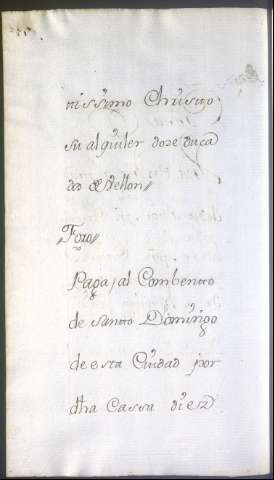 nissimo Christo
su alquiler doze duca
dos de Vellon
Foro
Paga, al Combento
de santo Domingo
de esta Ciudad por
dha Cassa diez